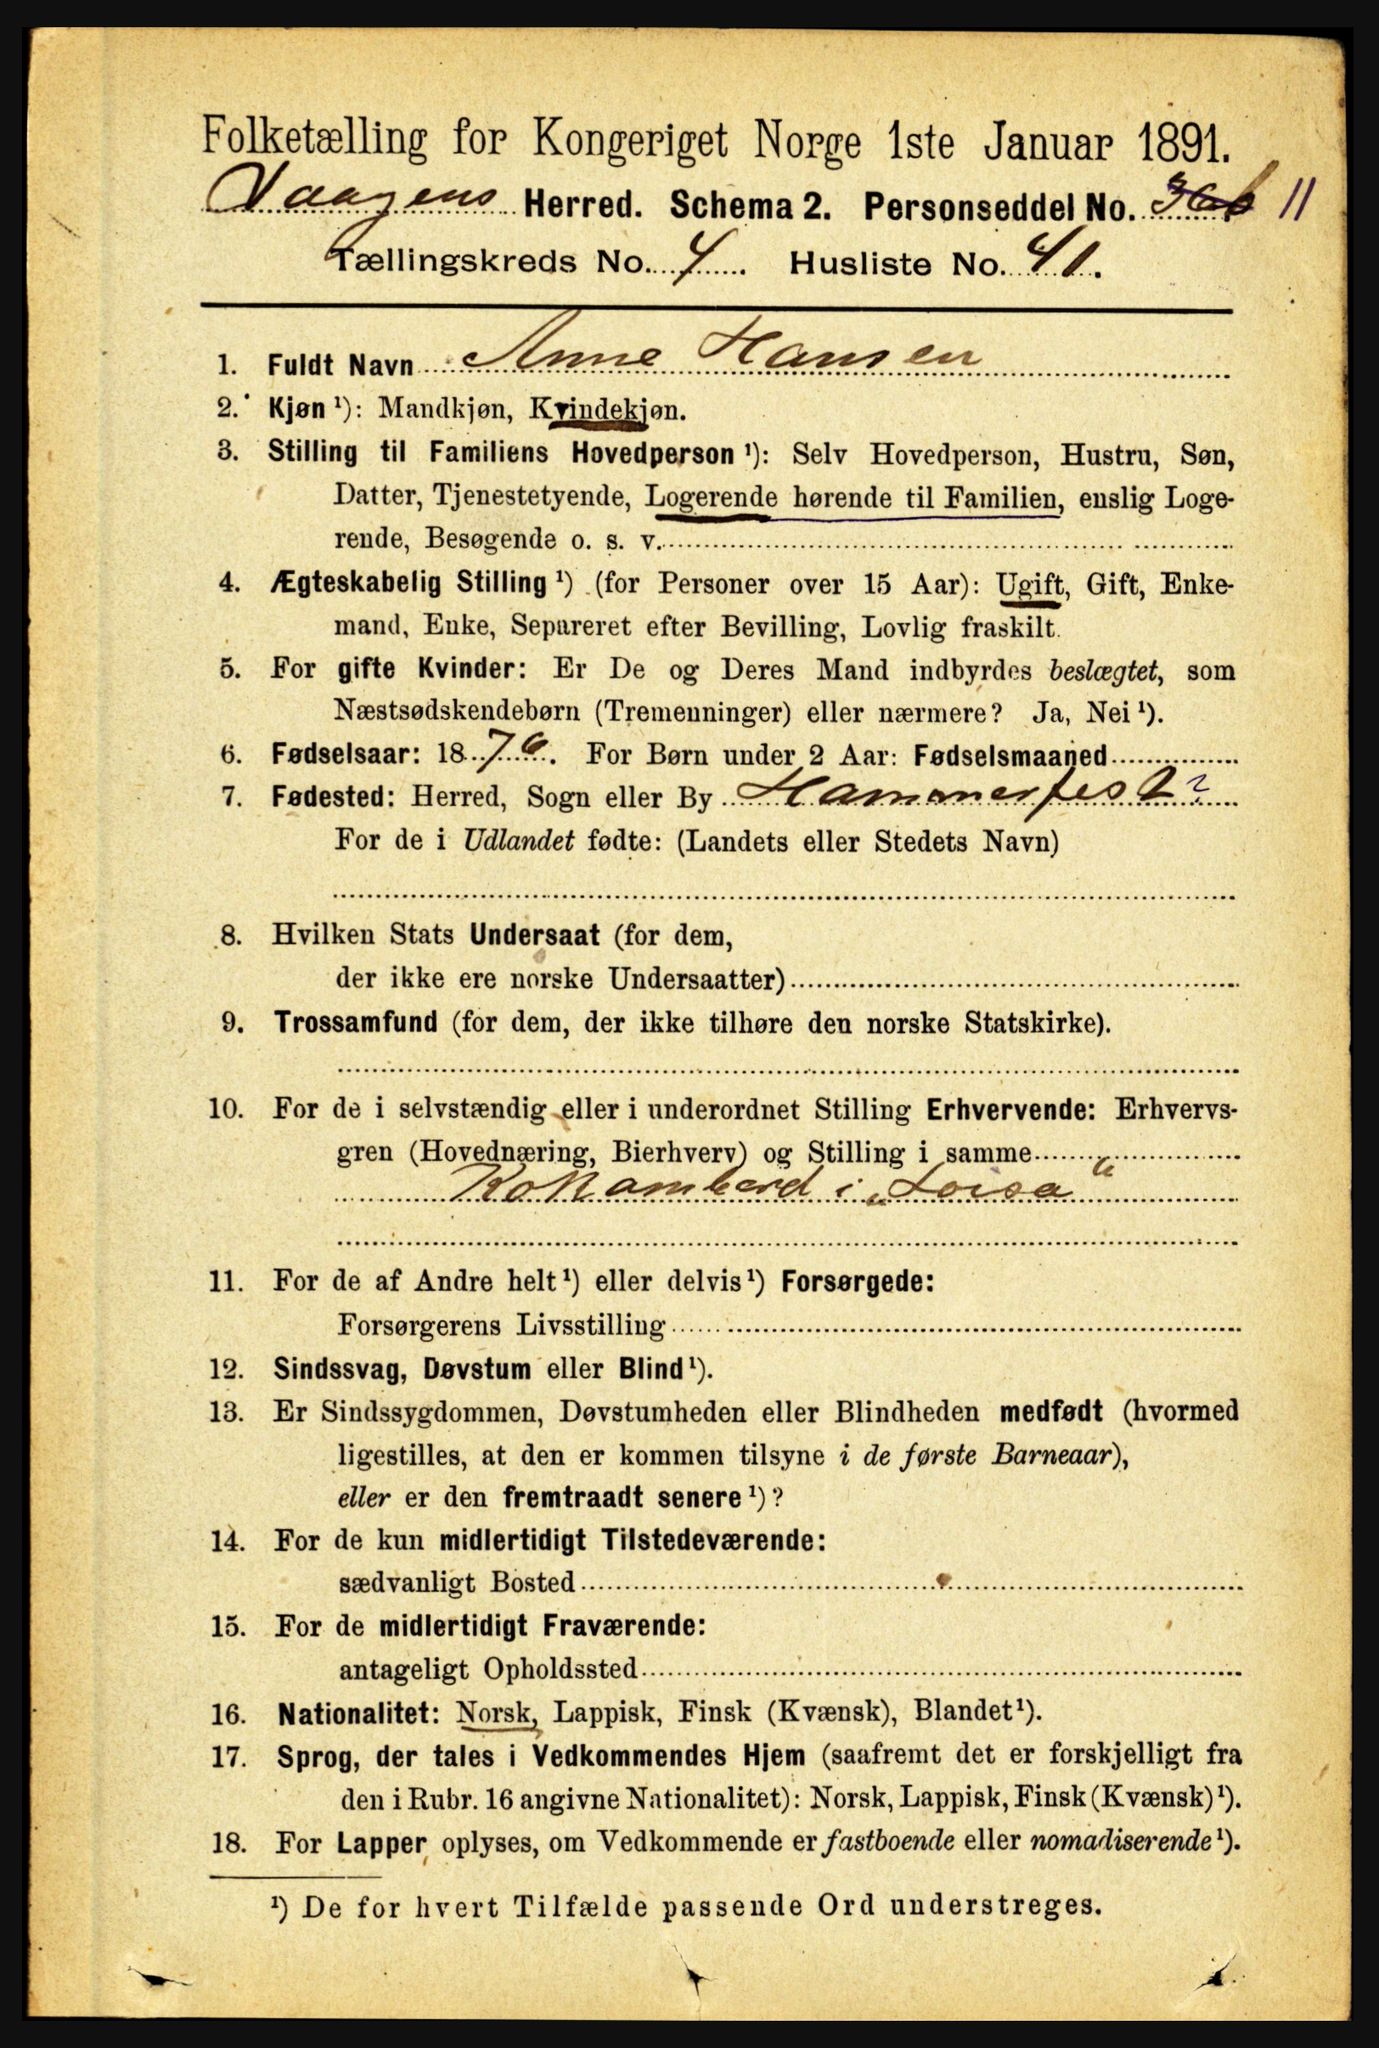 Folketælling for Kongeriget Norge 1ste Januar 1891.
Vaagens Herred. Schema 2. Personseddel No. 11
Tællingskreds No. 4. Husliste No. 41.
1. Fuldt Navn Anne Hansen
2. Kjøn ¹): Mandkjøn, Kvindekjøn.
3. Stilling til Familiens Hovedperson ¹): Selv Hovedperson, Hustru, Søn,
Datter, Tjenestetyende, Logerende hørende til Familien, enslig Loge-
rende, Besøgende o. s. v.
4. Ægteskabelig Stilling ¹) (for Personer over 15 Aar): Ugift, Gift, Enke-
mand, Enke, Separeret efter Bevilling, Lovlig fraskilt.
5. For gifte Kvinder: Er De og Deres Mand indbyrdes beslægtet, som
Næstsødskendebørn (Tremenninger) eller nærmere? Ja, Nei ¹).
6. Fødselsaar: 1876. For Børn under 2 Aar: Fødselsmaaned
7. Fødested: Herred, Sogn eller By Hammerfest?
For de i Udlandet fødte: (Landets eller Stedets Navn)
8. Hvilken Stats Undersaat (for dem,
der ikke ere norske Undersaatter)
9. Trossamfund (for dem, der ikke tilhøre den norske Statskirke).
10. For de i selvstændig eller i underordnet Stilling Erhvervende: Erhvervs-
gren (Hovednæring, Bierhverv) og Stilling i samme
i „Loisa“
11. For de af Andre helt ¹) eller delvis ¹) Forsørgede:
Forsørgerens Livsstilling
12. Sindssvag, Døvstum eller Blind ¹).
13. Er Sindssygdommen, Døvstumheden eller Blindheden medfødt (hvormed
ligestilles, at den er kommen tilsyne i de første Barneaar),
eller er den fremtraadt senere ¹)?
14. For de kun midlertidigt Tilstedeværende:
sædvanligt Bosted
15. For de midlertidigt Fraværende:
antageligt Opholdssted
16. Nationalitet: Norsk, Lappisk, Finsk (Kvænsk), Blandet ¹).
17. Sprog, der tales i Vedkommendes Hjem (saafremt det er forskjelligt fra
den i Rubr. 16 angivne Nationalitet): Norsk, Lappisk, Finsk (Kvænsk) ¹).
18. For Lapper oplyses, om Vedkommende er fastboende eller nomadiserende ¹).
¹) De for hvert Tilfælde passende Ord understreges.